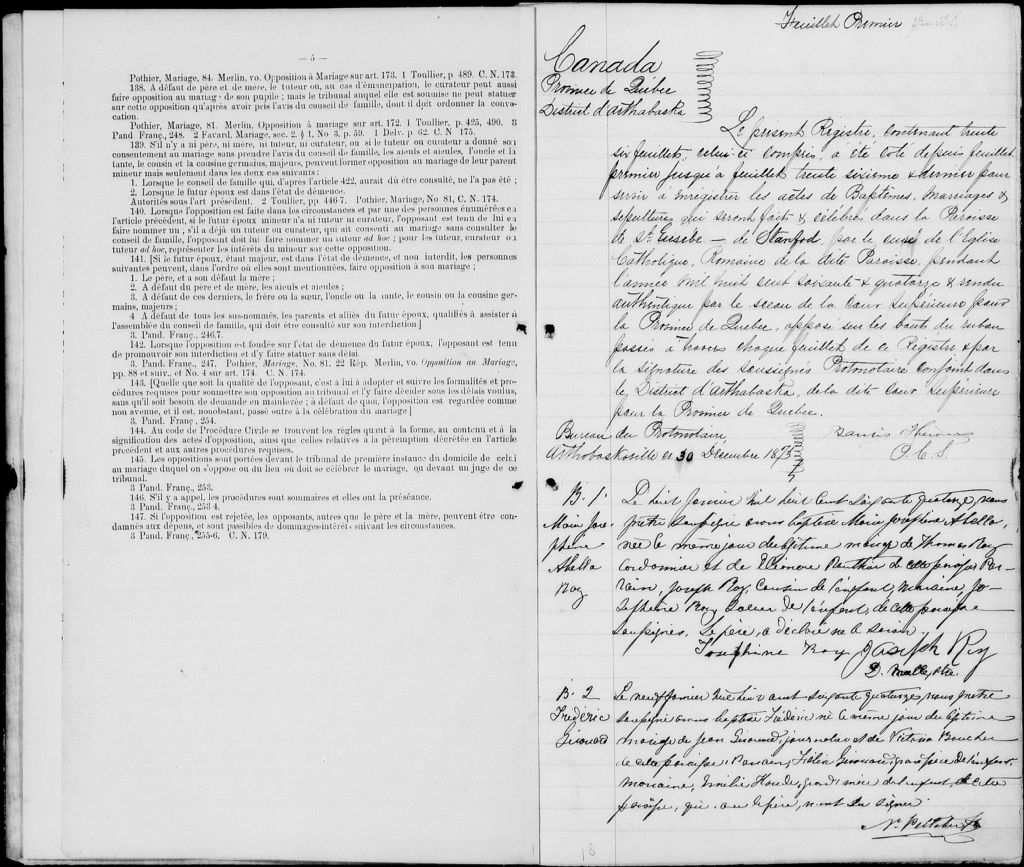 — 5 —
Pothier, Mariage, 84. Merlin, vo. Opposition à Mariage sur art. 173. 1 Toullier, p. 489. C. N. 173.
138. A défaut de père et de mère, le tuteur ou, au cas d'émancipation, le curateur peut aussi
faire opposition au mariage de son pupille ; mais le tribunal auquel elle est soumise ne peut statuer
sur cette opposition qu'après avoir pris l'avis du conseil de famille, dont il doit ordonner la convo-
cation.
Pothier, Mariage, 81. Merlin, Opposition à mariage sur art. 172. 1 Toullier, p. 425, 490. 3
Pand. Franç., 248. 2 Favard, Mariage, sec. 2. § 1, No 3, p. 59. 1 Delv. p. 62. C. N. 175.
139. S'il n'y a ni père, ni mère, ni tuteur, ni curateur, ou si le tuteur ou curateur a donné son
consentement au mariage sans prendre l'avis du conseil de famille, les aïeuls et aïeules, l'oncle et la
tante, le cousin et la cousine germains, majeurs, peuvent former opposition au mariage de leur parent
mineur mais seulement dans les deux cas suivants :
1. Lorsque le conseil de famille qui, d'après l'article 422, aurait dû être consulté, ne l'a pas été ;
2. Lorsque le futur époux est dans l'état de démence.
Autorités sous l'art présent. 2 Toullier, pp. 446-7. Pothier, Mariage, No 81, C. N. 174.
140. Lorsque l'opposition est faite dans les circonstances et par une des personnes énumérées en
l'article précédent, si le futur époux mineur n'a ni tuteur ni curateur, l'opposant est tenu de lui en
faire nommer un ; s'il a déjà un tuteur ou curateur, qui ait consenti au mariage sans consulter le
conseil de famille, l'opposant doit lui faire nommer un tuteur ad hoc ; pour les tuteur, curateur ou
tuteur ad hoc, représenter les intérêts du mineur sur cette opposition.
141. [Si le futur époux, étant majeur, est dans l'état de démence, et non interdit, les personnes
suivantes peuvent, dans l'ordre où elles sont mentionnées, faire opposition à son mariage ;
1. Le père, et a son défaut la mère ;
2. A défaut du père et de mère, les aïeuls et aïeules ;
3. A défaut de ces derniers, le frère ou la sœur, l'oncle ou la tante, le cousin ou la cousine ger-
mains, majeurs ;
4 A défaut de tous les sus-nommés, les parents et alliés du futur époux, qualifiés à assister à
l'assemblée du conseil de famille, qui doit être consulté sur son interdiction.]
3. Pand. Franç., 246,7.
142. Lorsque l'opposition est fondée sur l'état de démence du futur époux, l'opposant est tenu
de promouvoir son interdiction et d'y faire statuer sans délai.
3. Pand. Franç., 247. Pothier, Mariage, No. 81. 22 Rép. Merlin, vo. Opposition au Mariage,
pp. 88 et suiv., et No. 4 sur art. 174. C. N. 174.
143. [Quelle que soit la qualité de l'opposant, c'est à lui à adopter et suivre les formalités et pro-
cédures requises pour soumettre son opposition au tribunal et l'y faire décider sous les délais voulus,
sans qu'il soit besoin de demande en mainlevée ; à défaut de quoi, l'opposition est regardée comme
non avenue, et il est, nonobstant, passé outre à la célébration du mariage]
3. Pand. Franç., 254.
144. Au code de Procédure Civile se trouvent les règles quant à la forme, au contenu et à la
signification des actes d'opposition, ainsi que celles relatives à la péremption décrétée en l'article
précédent et aux autres procédures requises.
145. Les oppositions sont portées devant le tribunal de première instance du domicile de celui
au mariage duquel on s'oppose ou du lieu où doit se célébrer le mariage, ou devant un juge de ce
tribunal.
3 Pand. Franç., 253.
146. S'il y a appel, les procédures sont sommaires et elles ont la préséance.
3. Pand. Franç., 253 4.
147. Si l'opposition est rejetée, les opposants, autres que le père et la mère, peuvent être con-
damnés aux dépens, et sont passibles de dommages-intérêts suivant les circonstances.
3 Pand. Franç., 255-6. C. N. 179.
Feuillet Premier
Canada
Province de Québec
District d'Arthabaska
Le présent Registre, contenant trente
six feuillets, celui ci compris, a été coté depuis feuillet
premier jusqu'à feuillet trente sixième & dernier pour
servir à enregistrer les actes de Baptêmes, Mariages &
sépultures qui seront faits & célébrés dans la Paroisse
de St. Eusèbe — de Stanfold, par le curé de l'Eglise
Catholique, Romaine de la dite Paroisse, pendant
l'année mil huit cent soixante & quatorze & rendu
authentique par le sceau de la Cour Supérieure pour
la Province de Québec, apposé sur les bouts du ruban
passés à travers chaque feuillet de ce Registre & par
la signature des soussignés Protonotaire conjoint dans
le District d'Arthabaska, de la dite Cour Supérieure
pour la Province de Québec.
Bureau du Protonotaire
Arthabaskaville ce 30 Décembre 1873
P. C. S.
B. 1.
Marie Jose-
phine
Abella
Roy
Le huit Janvier mil huit cent soixante quatorze, nous
prêtre soussigné avons baptisé Marie Josephine Abella,
née le même jour du légitime mariage de Thomas Roy
Cordonnier et de Eléonore de cette paroisse Par-
rain, Joseph Roy, Cousin de l'enfant, marraine, Jo-
sephine Roy Soeur de l'enfant, de cette paroisse
soussignés. Le père, a déclaré ne le savoir.
Josephine Roy Joseph Roy
B. 2
Frédéric
Girouard
Le neuf Janvier mil huit cent soixante quatorze, nous prêtre
soussigné avons baptisé Frédéric né le même jour du légitime
mariage de Jean Girouard, journalier et de Victoria Boucher
de cette paroisse. Parrain, Félix Girouard, grand père de l'enfant,
marraine, Emilie Houde, grand mère de l'enfant, de cette
paroisse, qui, avec le père, n'ont su signer.